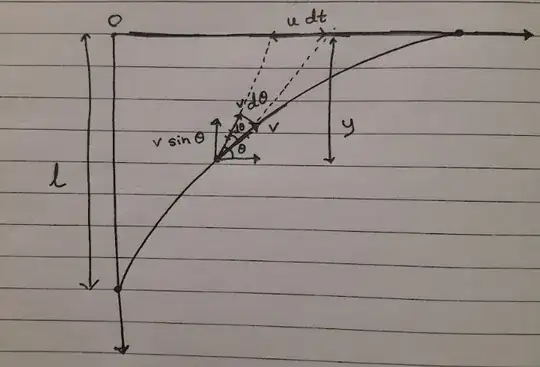 O
u dt
v
dθ
dθ
v
v sin θ
θ
y
l